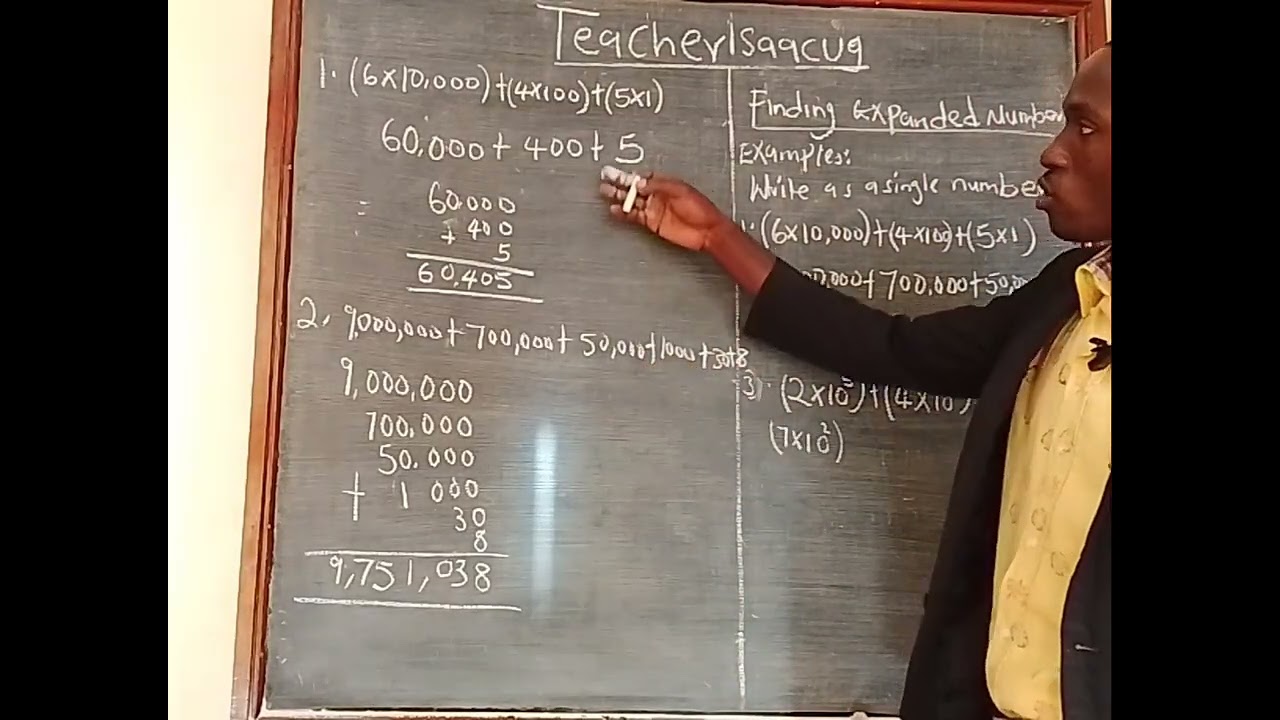 TeacherIsaacug
1. (6×10,000)+(4×100)+(5×1)
60,000+400+5
= 60,000
+ 400
5
60,405
2. 9,000,000+700,000+50,000+1000+30+8
9,000,000
700,000
50,000
+ 1 000
30
8
9,751,038
Finding Expanded Number
Examples:
Write as a single number
1. (6×10,000)+(4×100)+(5×1)
00,000+700,000+50,00
3). (2×10⁵)+(4×10
(7×10²)